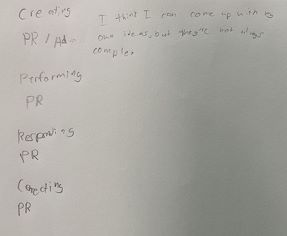 Creating
I think I can come up with
PR / Ad
own ideas, but they're not always
complex
Performing
PR
Responding
PR
Connecting
PR